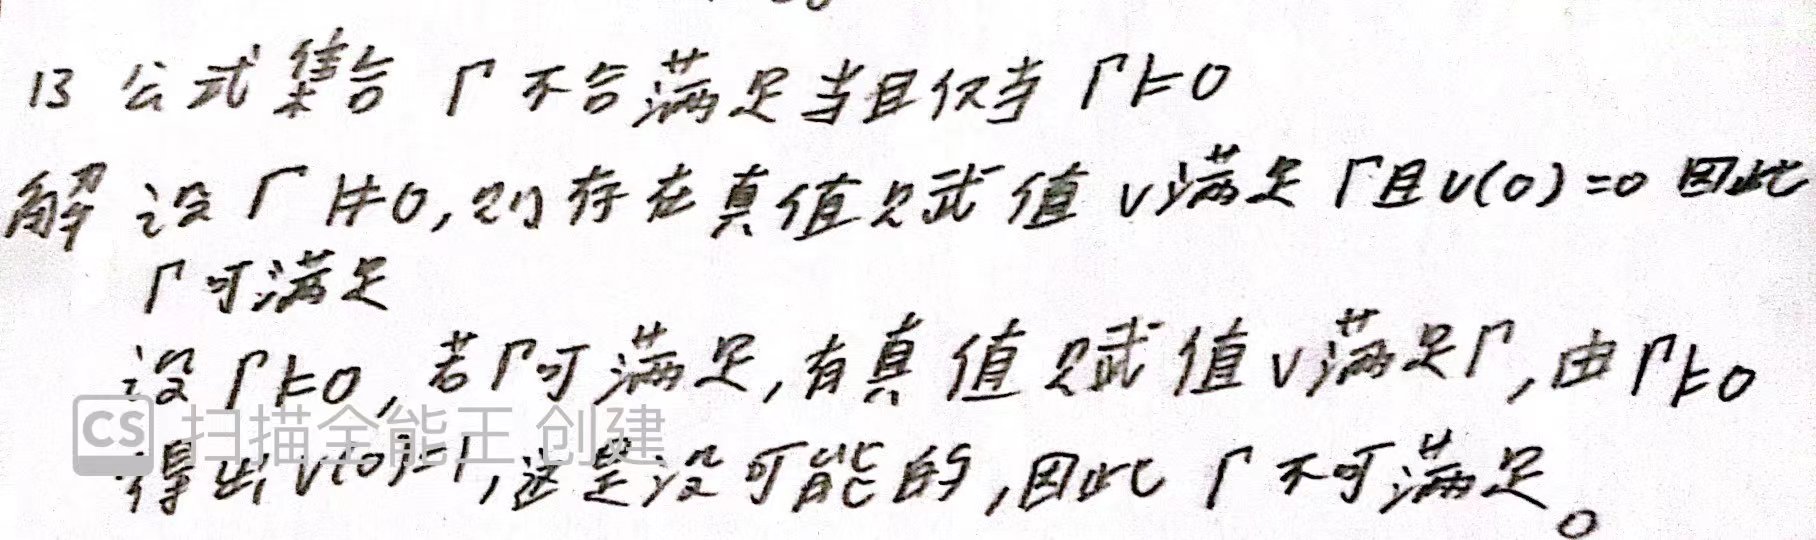 13 公式集合 Γ 不合满足当且仅当 Γ⊨0
解 设 Γ ⊭0,则存在真值赋值 v满足 Γ且v(0)=0 因此
Γ可满足
设 Γ⊨0, 若Γ可满足,有真值赋值v满足Γ,由Γ⊨0
得出v(0)=1,这是没可能的,因此 Γ不可满足。
CS 扫描全能王 创建